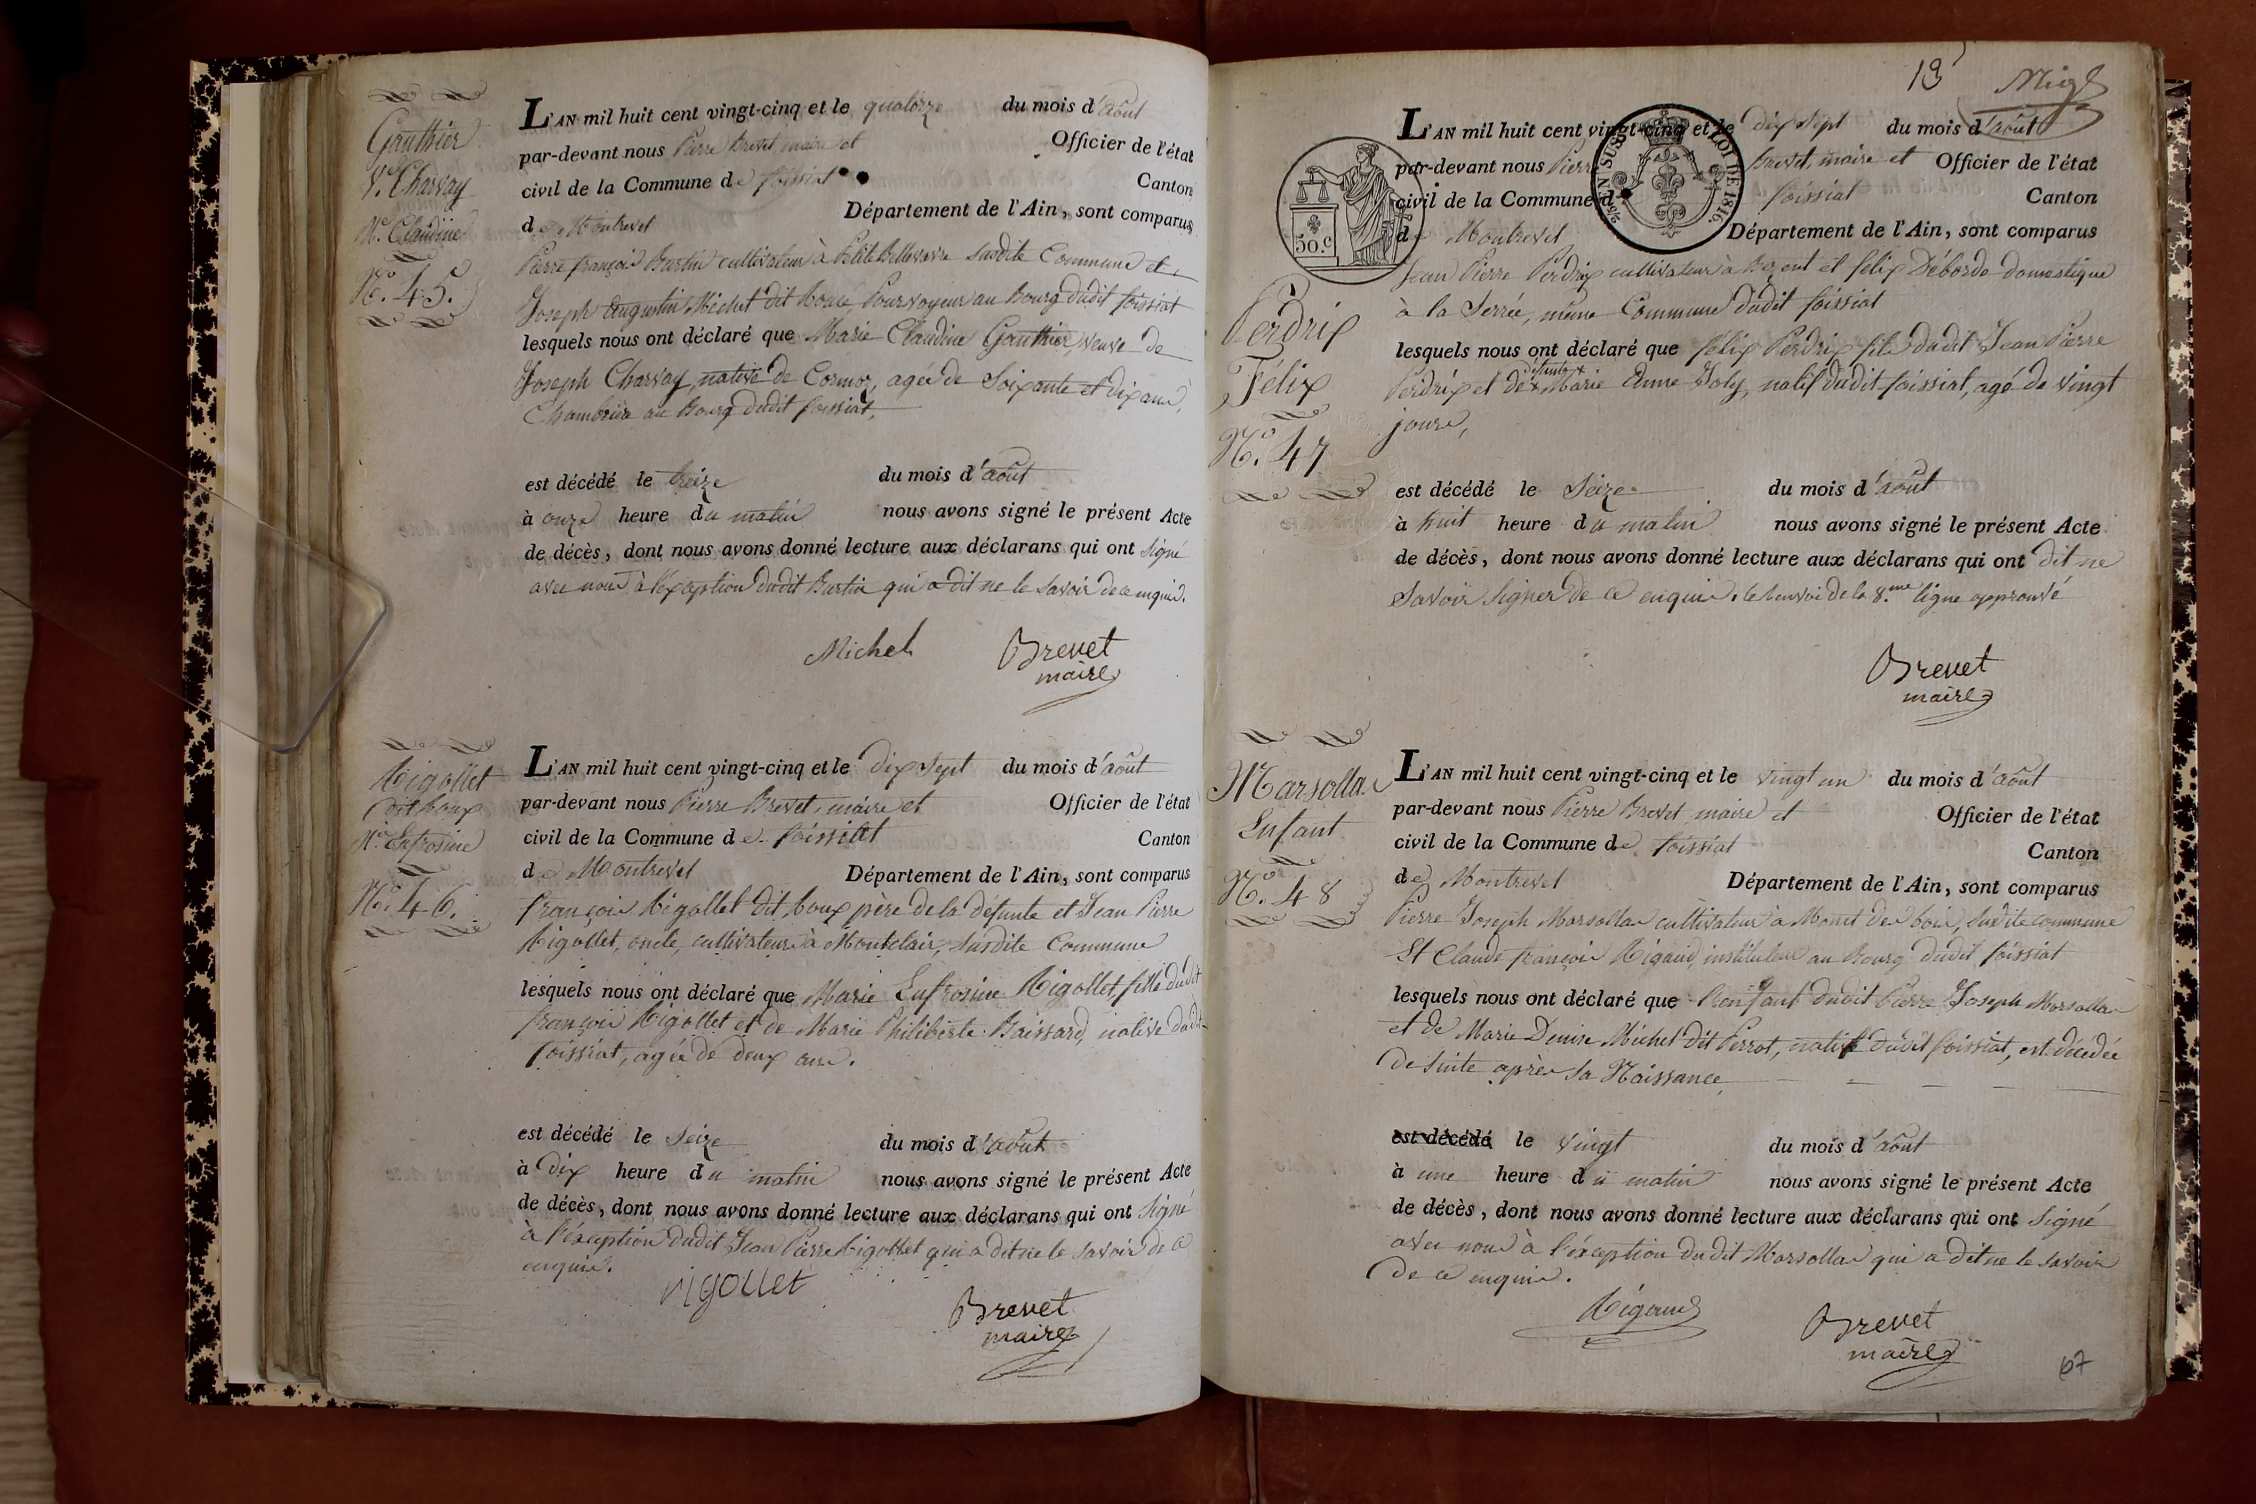 Gauthier
Ve. Charvay
Me. Claudine
No. 45.
L'AN mil huit cent vingt-cinq et le quatorze du mois d'août
par-devant nous Pierre Brevet, maire et Officier de l'état
civil de la Commune de foissiat Canton
de Montrevel Département de l'Ain, sont comparus
Pierre françois Burtin cultivateur à Petite susdite Commune et
Joseph Augustin Michel dit pourvoyeur au Bourg dudit foissiat
lesquels nous ont déclaré que Marie Claudine Gauthier, veuve de
Joseph Charvay, native de Cormoz, agée de Soixante et dix ans,
au Bourg dudit foissiat,
est décédé le treize du mois d'août
à onze heure du matin nous avons signé le présent Acte
de décès, dont nous avons donné lecture aux déclarans qui ont signé
avec nous à l'exception dudit Burtin qui a dit ne le savoir de ce enquis.
Michel Brevet
maire
Rigollet
dit Roux
Me. Eufrosine
No. 46.
L'AN mil huit cent vingt-cinq et le dix Sept du mois d'août
par-devant nous Pierre Brevet, maire et Officier de l'état
civil de la Commune de foissiat Canton
de Montrevel Département de l'Ain, sont comparus
françois Rigollet dit Roux père de la défunte et Jean Pierre
Rigollet, oncle, cultivateurs à Montclair, susdite Commune
lesquels nous ont déclaré que Marie Eufrosine Rigollet, fille dudit
françois Rigollet et de Marie Philiberte native dudit
foissiat, agée de deux ans.
est décédé le Seize du mois d'août
à Dix heure du matin nous avons signé le présent Acte
de décès, dont nous avons donné lecture aux déclarans qui ont Signé
à l'exception dudit Jean Pierre Rigollet qui a dit ne le savoir de ce
enquis.
rigollet
Brevet
maire
13
TIMBRE
30.c
LOI DE 1816.
Perdrix
Félix
No. 47
L'AN mil huit cent vingt-cinq et le dix Sept du mois d'août
par-devant nous Pierre Brevet, maire et Officier de l'état
civil de la Commune de foissiat Canton
de Montrevel Département de l'Ain, sont comparus
Jean Pierre Perdrix cultivateur à et félix Déborde domestique
à la Serrée, même Commune dudit foissiat
lesquels nous ont déclaré que félix Perdrix fils dudit Jean Pierre
défunte
Perdrix et de Marie Anne Joly, natif dudit foissiat, agé de vingt
jours,
est décédé le Seize du mois d'août
à huit heure du matin nous avons signé le présent Acte
de décès, dont nous avons donné lecture aux déclarans qui ont dit ne
Savoir Signer de ce enquis. le renvoi de la 8.me ligne approuvé
Brevet
maire
Marsolla
Enfant
No. 48
L'AN mil huit cent vingt-cinq et le vingt un du mois d'août
par-devant nous Pierre Brevet, maire et Officier de l'état
civil de la Commune de foissiat Canton
de Montrevel Département de l'Ain, sont comparus
Pierre Joseph Marsolla cultivateur à des bois, susdite commune
Et Claude françois Rigaud, instituteur au Bourg dudit foissiat
lesquels nous ont déclaré que l'enfant dudit Pierre Joseph Marsolla
et de Marie Denise Michel dit Perrot, natif dudit foissiat, est décédée
de suite après sa Naissance
est décédé le vingt du mois d'août
à une heure du matin nous avons signé le présent Acte
de décès, dont nous avons donné lecture aux déclarans qui ont Signé
avec nous à l'exception dudit Marsolla qui a dit ne le savoir
de ce enquis.
Rigaud
Brevet
maire
67